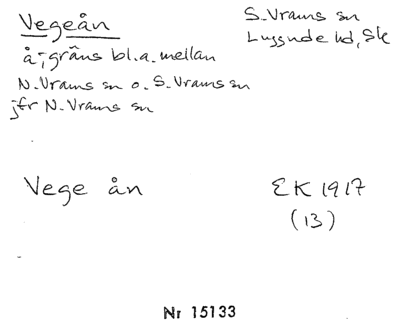 Vegeån
S. Vrams sn
Luggude hd, Sk
å; gräns bl.a. mellan
N. Vrams sn o. S. Vrams sn
jfr N. Vrams sn
Vege ån
EK 1917
(13)
Nr 15133